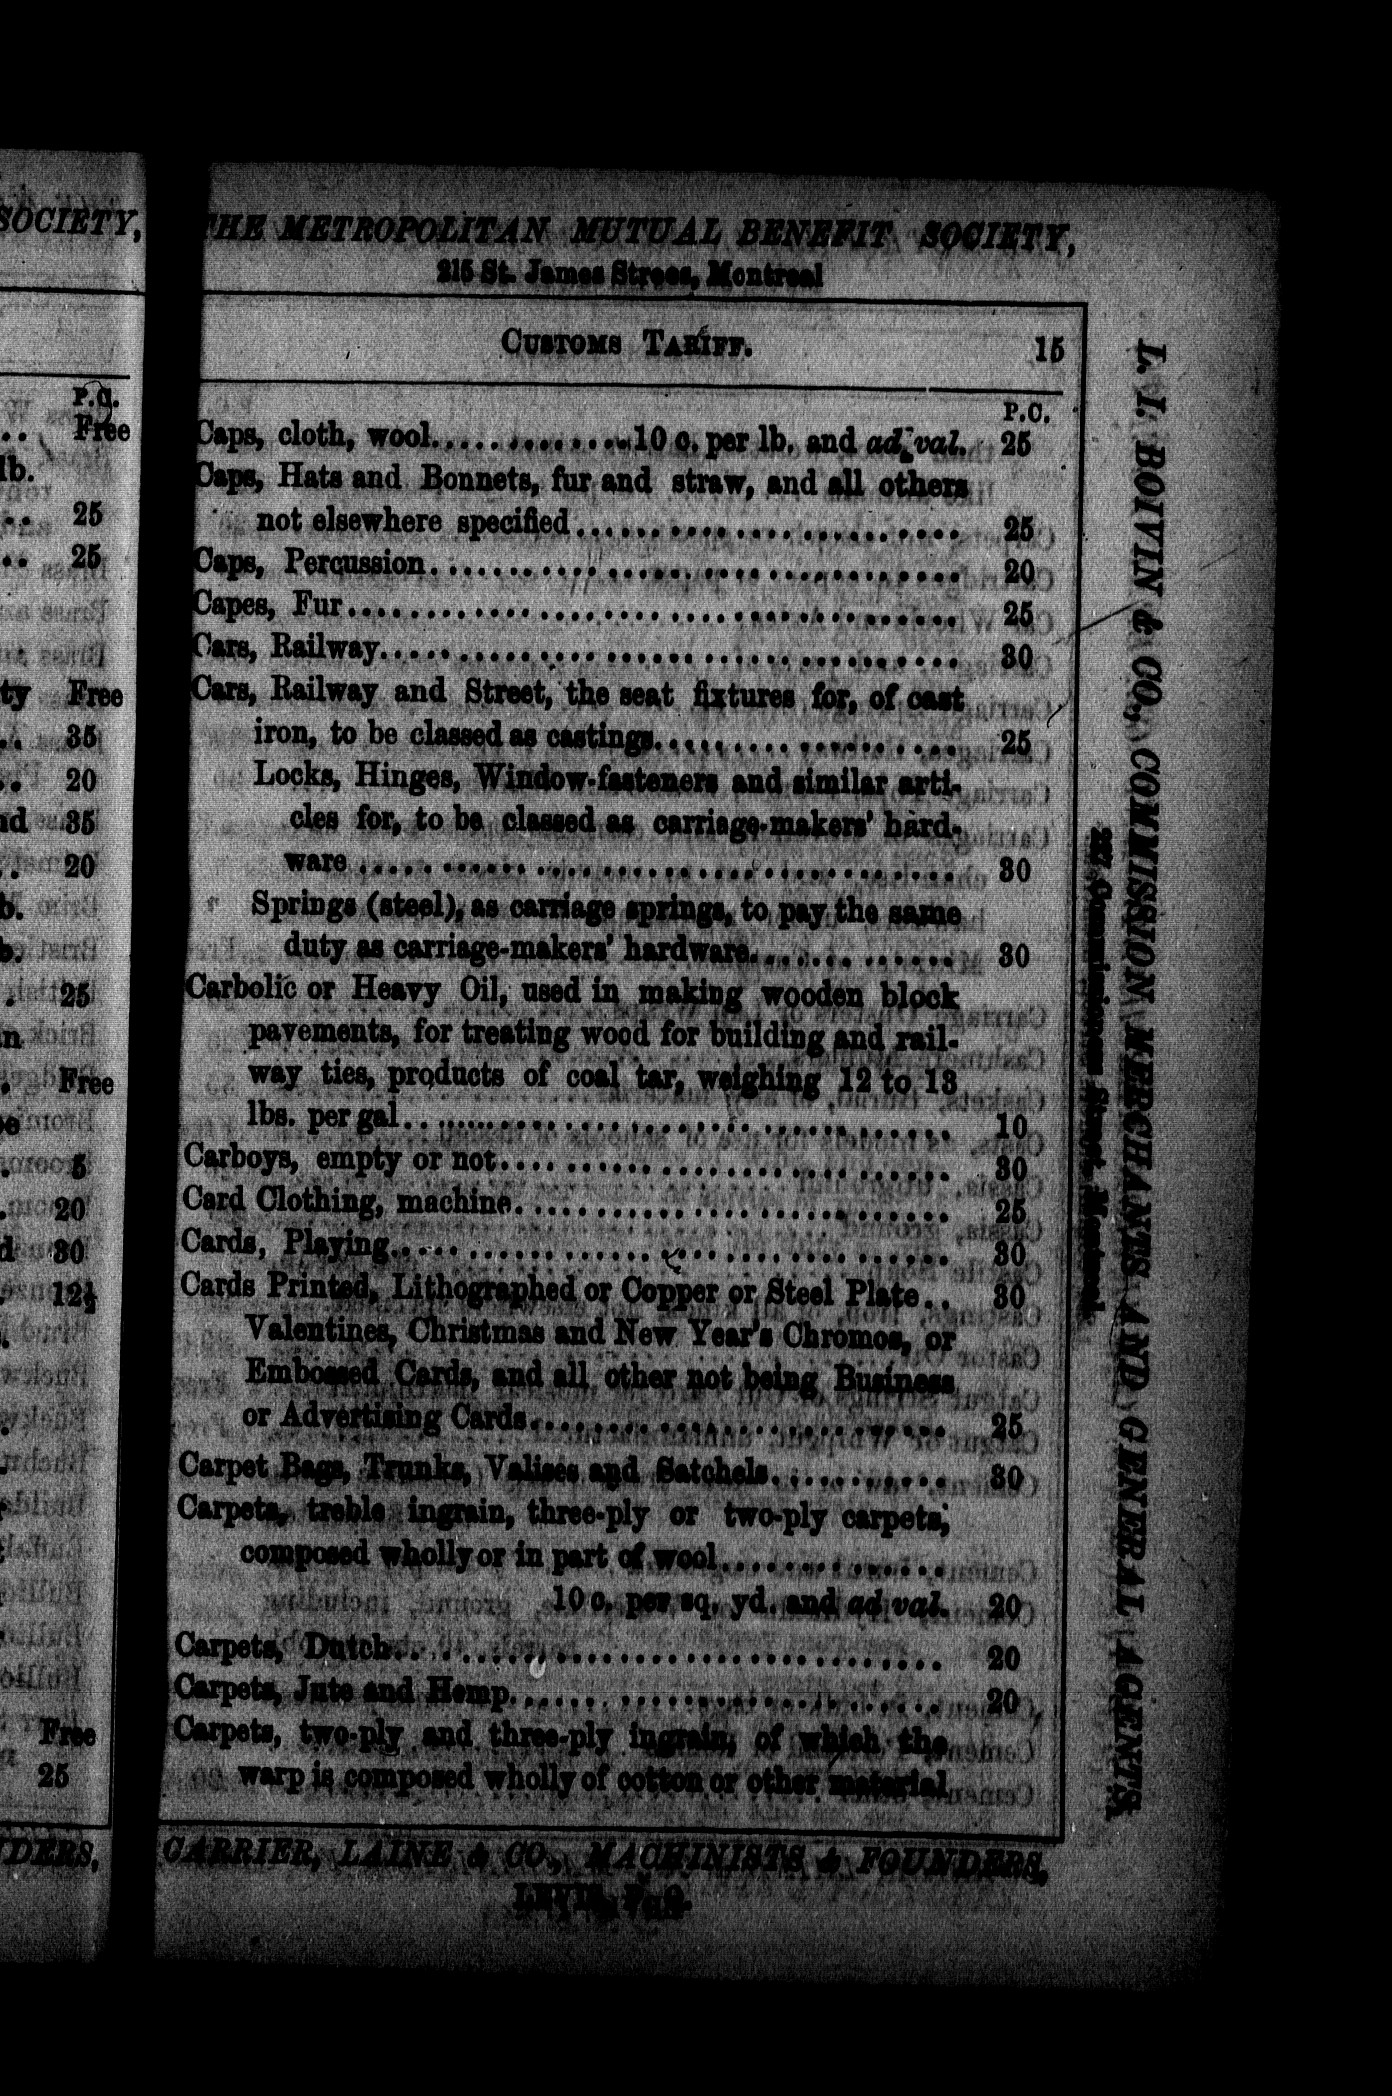 THE METROPOLITAN MUTUAL BENEFIT SOCIETY,
215 St. James Street, Montreal
CUSTOMS TARIFF. 15
P.C.
Caps, cloth, wool.............10 c. per lb. and ad. val. 25
Caps, Hats and Bonnets, fur and straw, and all others
not elsewhere specified........................ 25
Caps, Percussion................................ 20
Capes, Fur..................................... 25
Cars, Railway.................................. 30
Cars, Railway and Street, the seat fixtures for, of cast
iron, to be classed as castings................... 25
Locks, Hinges, Window-fasteners and similar arti-
cles for, to be classed as carriage-makers' hard-
ware ...................................... 30
Springs (steel), as carriage springs, to pay the same
duty as carriage-makers' hardware............. 30
Carbolic or Heavy Oil, used in making wooden block
pavements, for treating wood for building and rail-
way ties, products of coal tar, weighing 12 to 13
lbs. per gal.................................... 10
Carboys, empty or not............................ 30
Card Clothing, machine........................... 25
Cards, Playing.................................. 30
Cards Printed, Lithographed or Copper or Steel Plate.. 30
Valentines, Christmas and New Year's Chromos, or
Embossed Cards, and all other not being Business
or Advertising Cards.......................... 25
Carpet Bags, Trunks, Valises and Satchels........... 30
Carpets, treble ingrain, three-ply or two-ply carpets,
composed wholly or in part of wool..............
10 c. per sq. yd. and ad val. 20
Carpets, Dutch.................................. 20
Carpets, Jute and Hemp........................... 20
Carpets, two-ply and three-ply ingrain, of which the
warp is composed wholly of cotton or other material
CARRIER, LAINE & CO., MACHINISTS & FOUNDERS,
LEVIS, P. Q.
L. I. BOIVIN & CO., COMMISSION MERCHANTS AND GENERAL AGENTS,
Commissioners Street, Montreal.
SOCIETY,
P.C.
.. Free
lb.
.. 25
.. 25
ty Free
.. 35
.. 20
nd 35
.. 20
b.
b.
. 25
in
. Free
pe
. 5
. 20
d 30
. 12½
Free
25
NDERS,